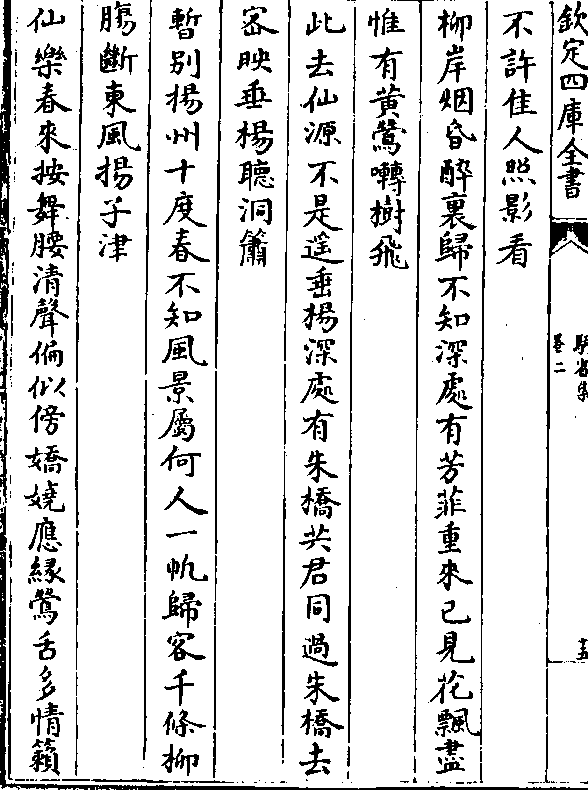 欽定四庫全書
騎省集
卷二
不許佳人照影看
柳岸烟昏醉裏歸不知深處有芳菲重來已見花飄盡
惟有黄鶯囀樹飛
此去仙源不是遥垂楊深處有朱橋共君同過朱橋去
宻映垂楊聽洞簫
暫别揚州十度春不知風景屬何人一帆歸客千條柳
腸斷東風揚子津
仙樂春來按舞腰清聲偏似傍嬌嬈應緣鶯舌多情賴